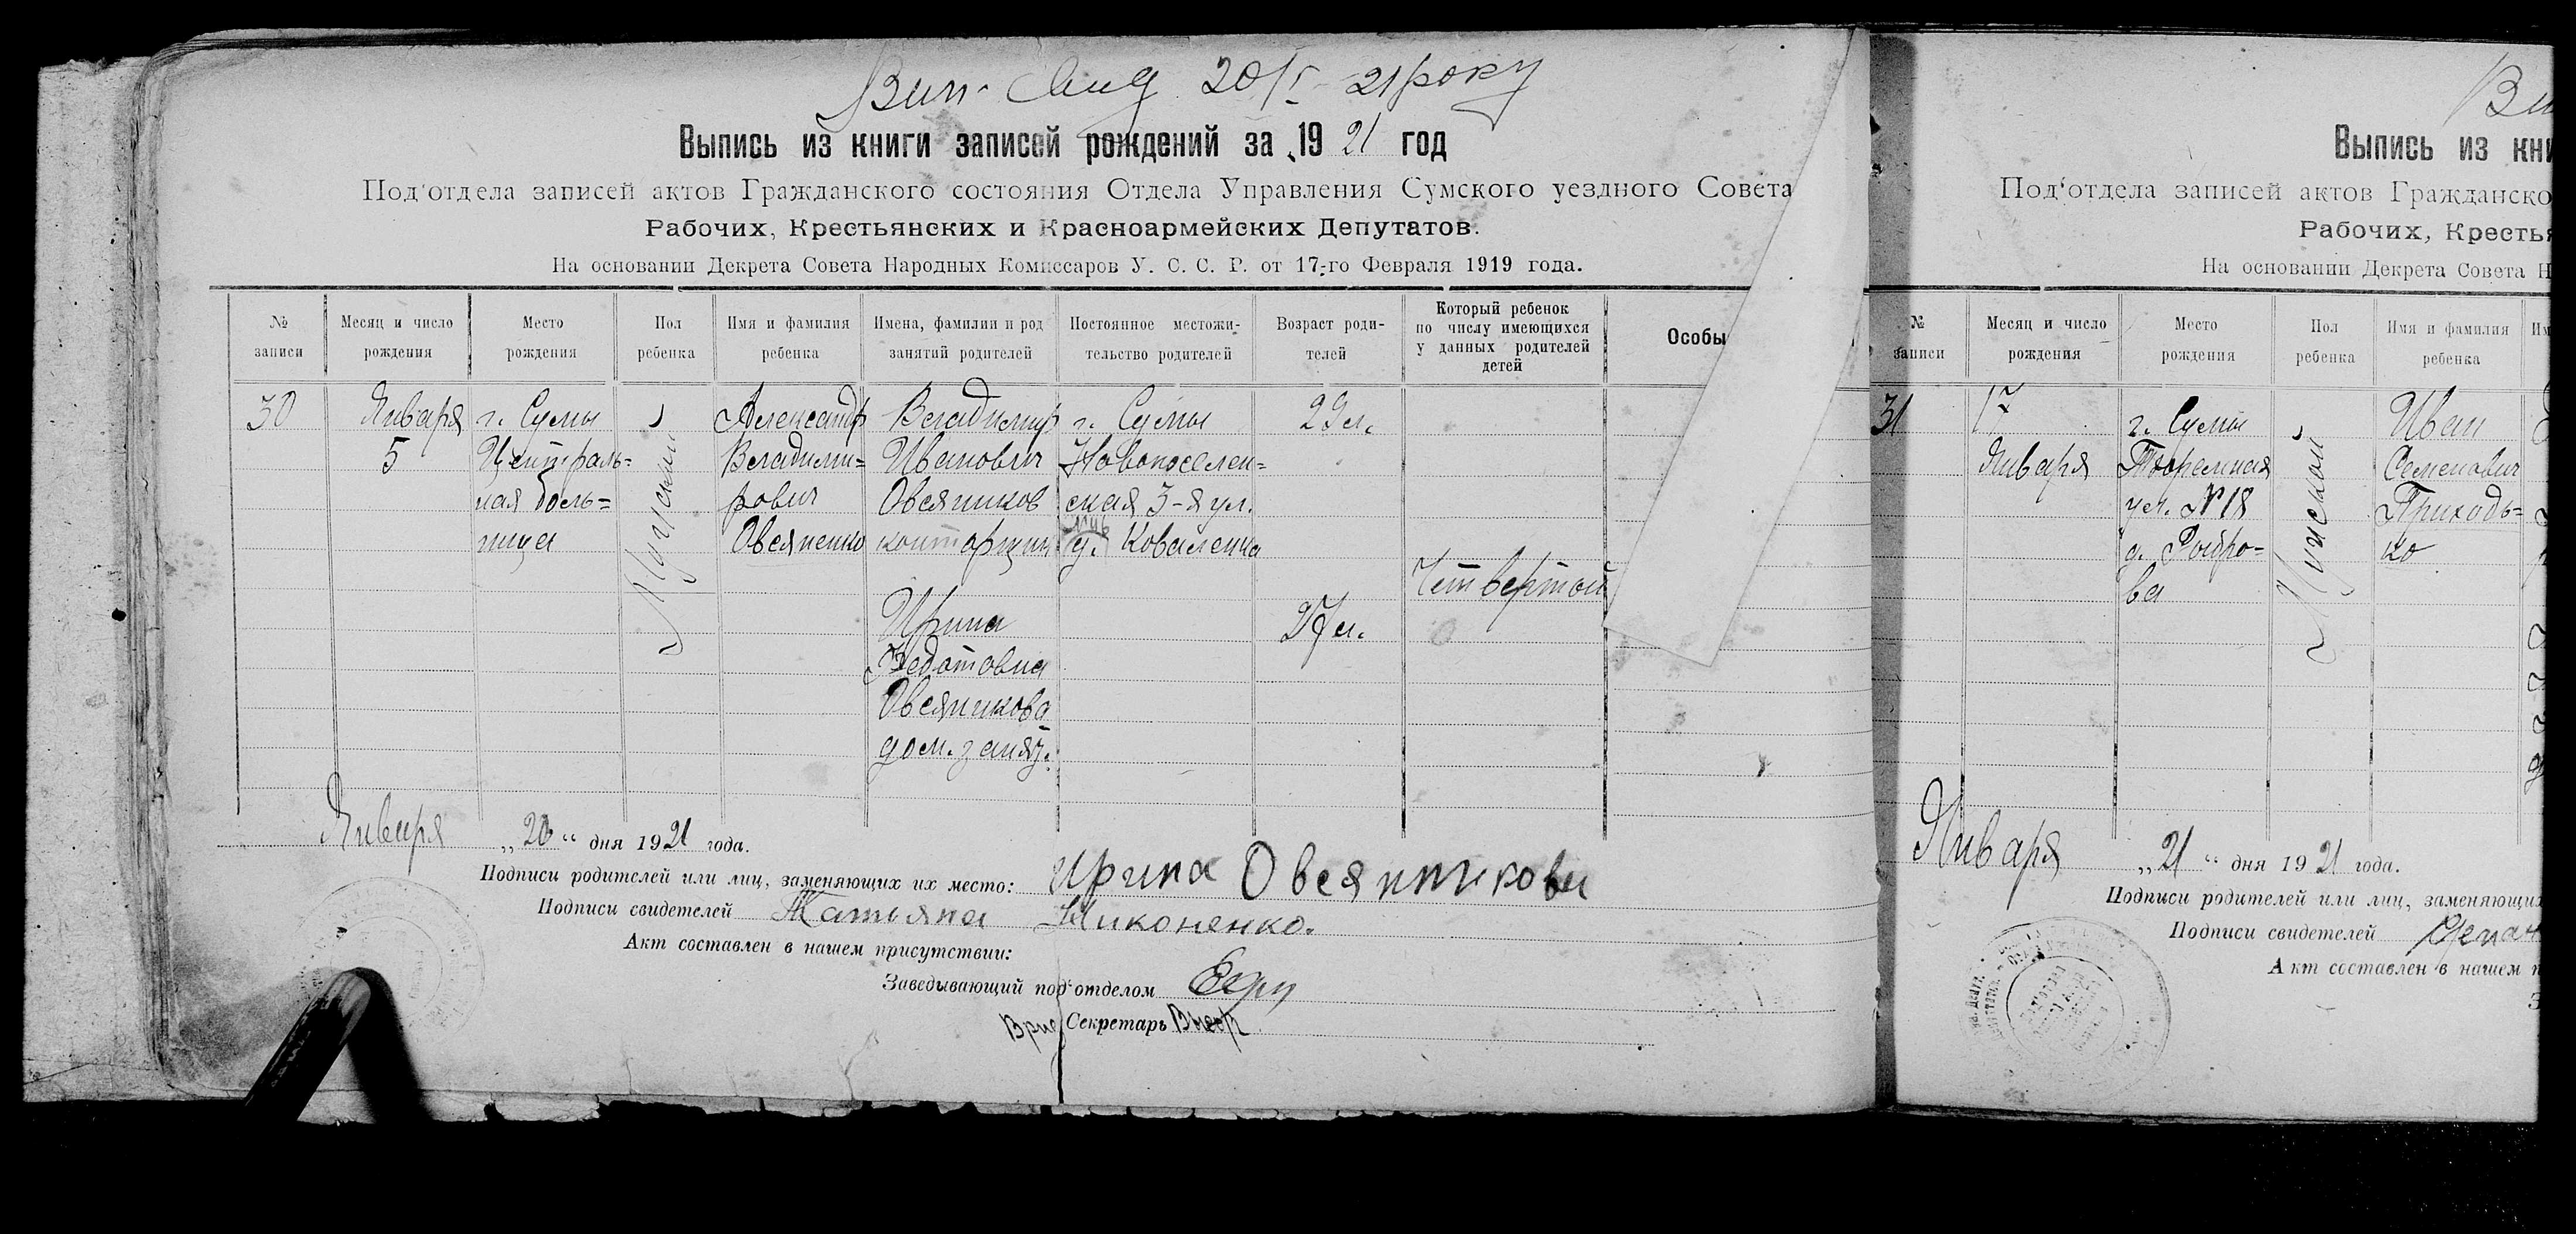 Вип. 20/I 21 року
Выпись из книги записей рождений за 1921 год
Под'отдела записей актов Гражданского состояния Отдела Управления Сумского уездного Совета
Рабочих, Крестьянских и Красноармейских Депутатов.
На основании Декрета Совета Народных Комиссаров У. С. С. Р. от 17-го Февраля 1919 года.
№ записи
Месяц и число рождения
Место рождения
Пол ребенка
Имя и фамилия ребенка
Имена, фамилии и род занятий родителей
Постоянное местожи-
тельство родителей
Возраст роди-
телей
Который ребенок
по числу имеющихся
у данных родителей
детей
Особы
30
Января
5
г. Сумы
Централь=
ная боль=
ница
Мужской
Александр
Владими=
рович
Овсяненко
Владимир
Иванович
Овсяников
конторщик
Ирина
Федотовна
Овсяникова
дом. занят.
г. Сумы
Новопоселен=
ская 3-я ул.
д. Коваленка
29 л.
27 л.
Четвертый
Января „20“ дня 1921 года.
Подписи родителей или лиц, заменяющих их место: Ирина Овсянникова
Подписи свидетелей Татьяна Никоненко.
Акт составлен в нашем присутствии:
Заведывающий под'отделом
Врид Секретарь
Выпись из кни
Под'отдела записей актов Гражданско
Рабочих, Крестья
На основании Декрета Совета Н
№ записи
Месяц и число рождения
Место рождения
Пол ребенка
Имя и фамилия ребенка
Им
31
17
Января
г. Сумы
Тюремная
ул. №18
Мужской
Иван
Семенович
Приходь=
ко
Января „21“ дня 1921 года.
Подписи родителей или лиц, заменяющих
Подписи свидетелей
Акт составлен в нашем п